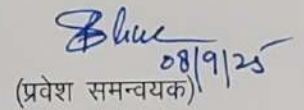 08/9/25
(प्रवेश समन्वयक)